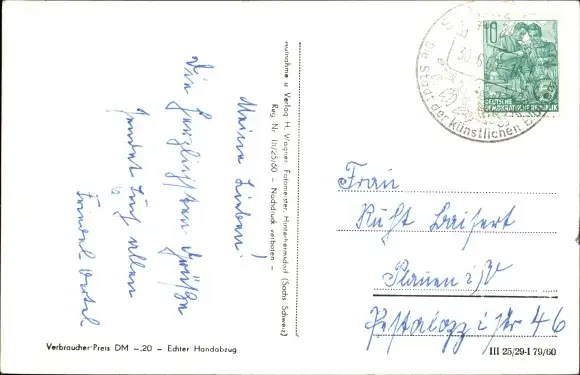 Meine Lieben!
Die herzlichsten Grüße
sendet Euch allen
Aufnahme u Verlag H. Wagner Fotomeister, Hinterhermsdorf (Sächs Schweiz)
Reg Nr III/25/60 – Nachdruck verboten –
10
DEUTSCHE
DEMOKRATISCHE REPUBLIK
Die Stadt der künstlichen
Frau
Plauen i/V
Pestalozzistr 46
Verbraucher-Preis DM –.20 – Echter Handabzug
III 25/29-I 79/60